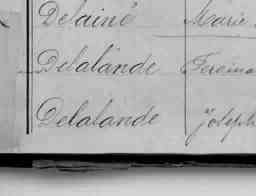 Delainé Marie
Delalande Ferdina
Delalande Joseph